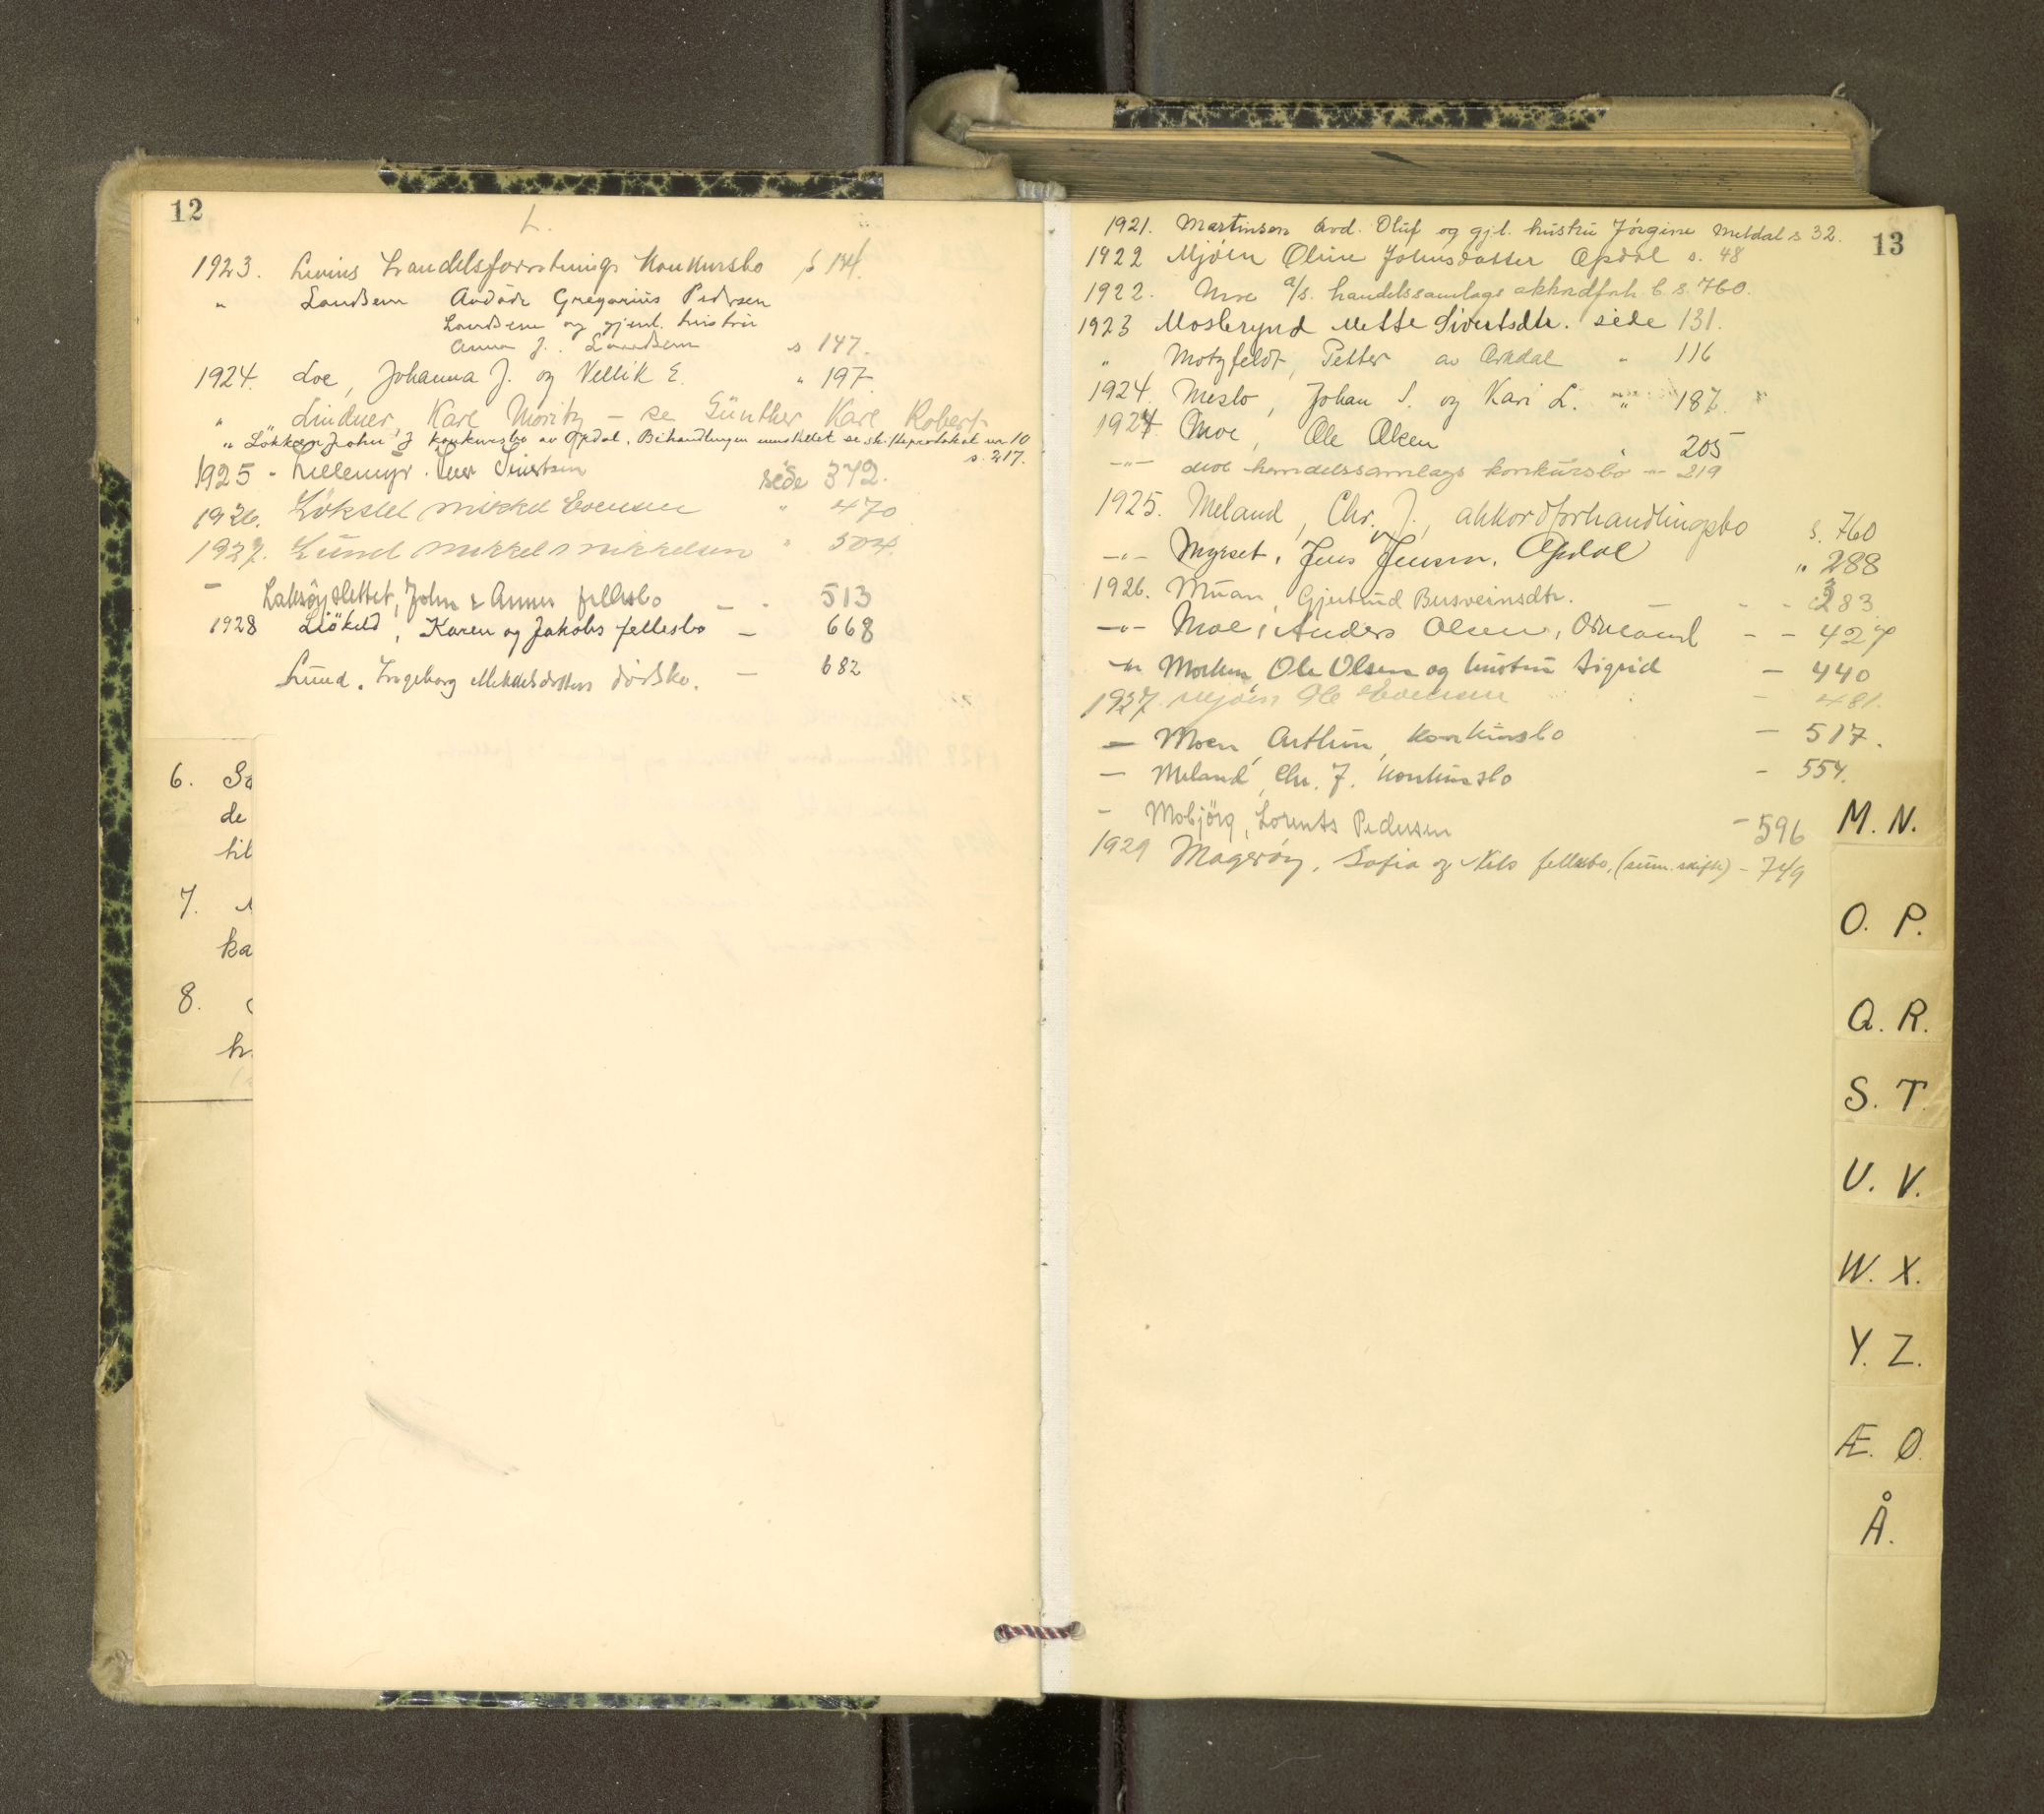 12
L.
1923. Livius Handelsforretnings Konkursbo s 144.
" Landsem Avdøde Gregorius Pedersen
Landsem og gjenl. hustru
Anna J. Landsem s 147.
1924. Loe, Johanna J. og Vellik E. " 197
" Lindner, Karl Moritz – se Günther Karl Robert
" Løkken John J konkursbo av Opdal. Behandlingen innstillet se skifteprotokol nr 10
s. 217.
1925 - Lillemyr. Iver Sivertsen side 372.
1926. Løkslet Mikkel Evensen " 470
1927. Lund Mikkel Mikkelsen " 504.
– Laksøyslettet, John & Annes fellesbo – - 513
1928 Liøkeld, Karen og Jakobs fellesbo – 668
Lund. Ingeborg Mikkelsdatters dødsbo. – 682
6. Sa
de
til
7.
ka
8.
h.
13
1921. Martinsen Avd. Oluf og gjl. hustru Jørgine Meldal s 32.
1922 Mjøen Oline Johnsdatter Opdal s. 48
1922. Moe A/s. handelssamlags akkordforh. b. s. 760.
1923 Mosbrynd Mette Sivertsdtr. side 131.
" Motzfeldt, Petter av Orkdal " 116
1924. Meslo, Johan S. og Kari L. " 187.
1924 Moe, Ole Olsen 205
–"– Moe handelssamlags konkursbo –"– 219
1925. Meland, Chr. J., akkordforhandlingsbo s. 760
–"– Myrset, Jens Jensen. Opdal " 288
1926. Muan, Gjertrud Bersveinsdtr. – - - 383.
–"– Moe, Anders Olsen, Orkland - - 427
–"– Morken, Ole Olsen og hustru Sigrid – 440
1927. Mjøen Ole Evensen – 481.
– Moen, Arthur, Konkursbo – 517.
– Meland, Chr. J. Konkursbo - 554.
- Mobjörg, Lorents Pedersen - 596
1929 Magerøy, Sofia og Nils fellesbo, (sum. skifte) - 749
M. N.
O. P.
Q. R.
S. T.
U. V.
W. X.
Y. Z.
Æ. Ø
Å.